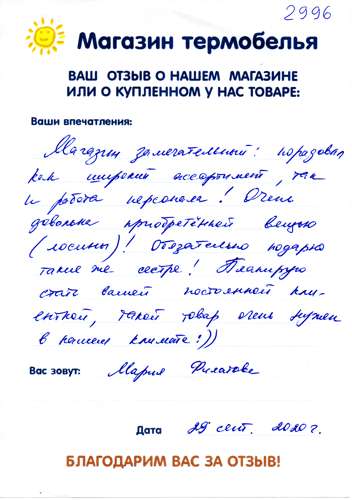 2996
Магазин термобелья
ВАШ ОТЗЫВ О НАШЕМ МАГАЗИНЕ
ИЛИ О КУПЛЕННОМ У НАС ТОВАРЕ:
Ваши впечатления:
Магазин замечательный: порадовал
как широкий ассортимент, так
и работа персонала! Очень
довольна приобретённой вещью
(лосины)! Обязательно подарю
такие же сестре! Планирую
стать вашей постоянной кли-
енткой, такой товар очень нужен
в нашем климате:))
Вас зовут: Мария Филатова
Дата 29 сент. 2020г.
БЛАГОДАРИМ ВАС ЗА ОТЗЫВ!